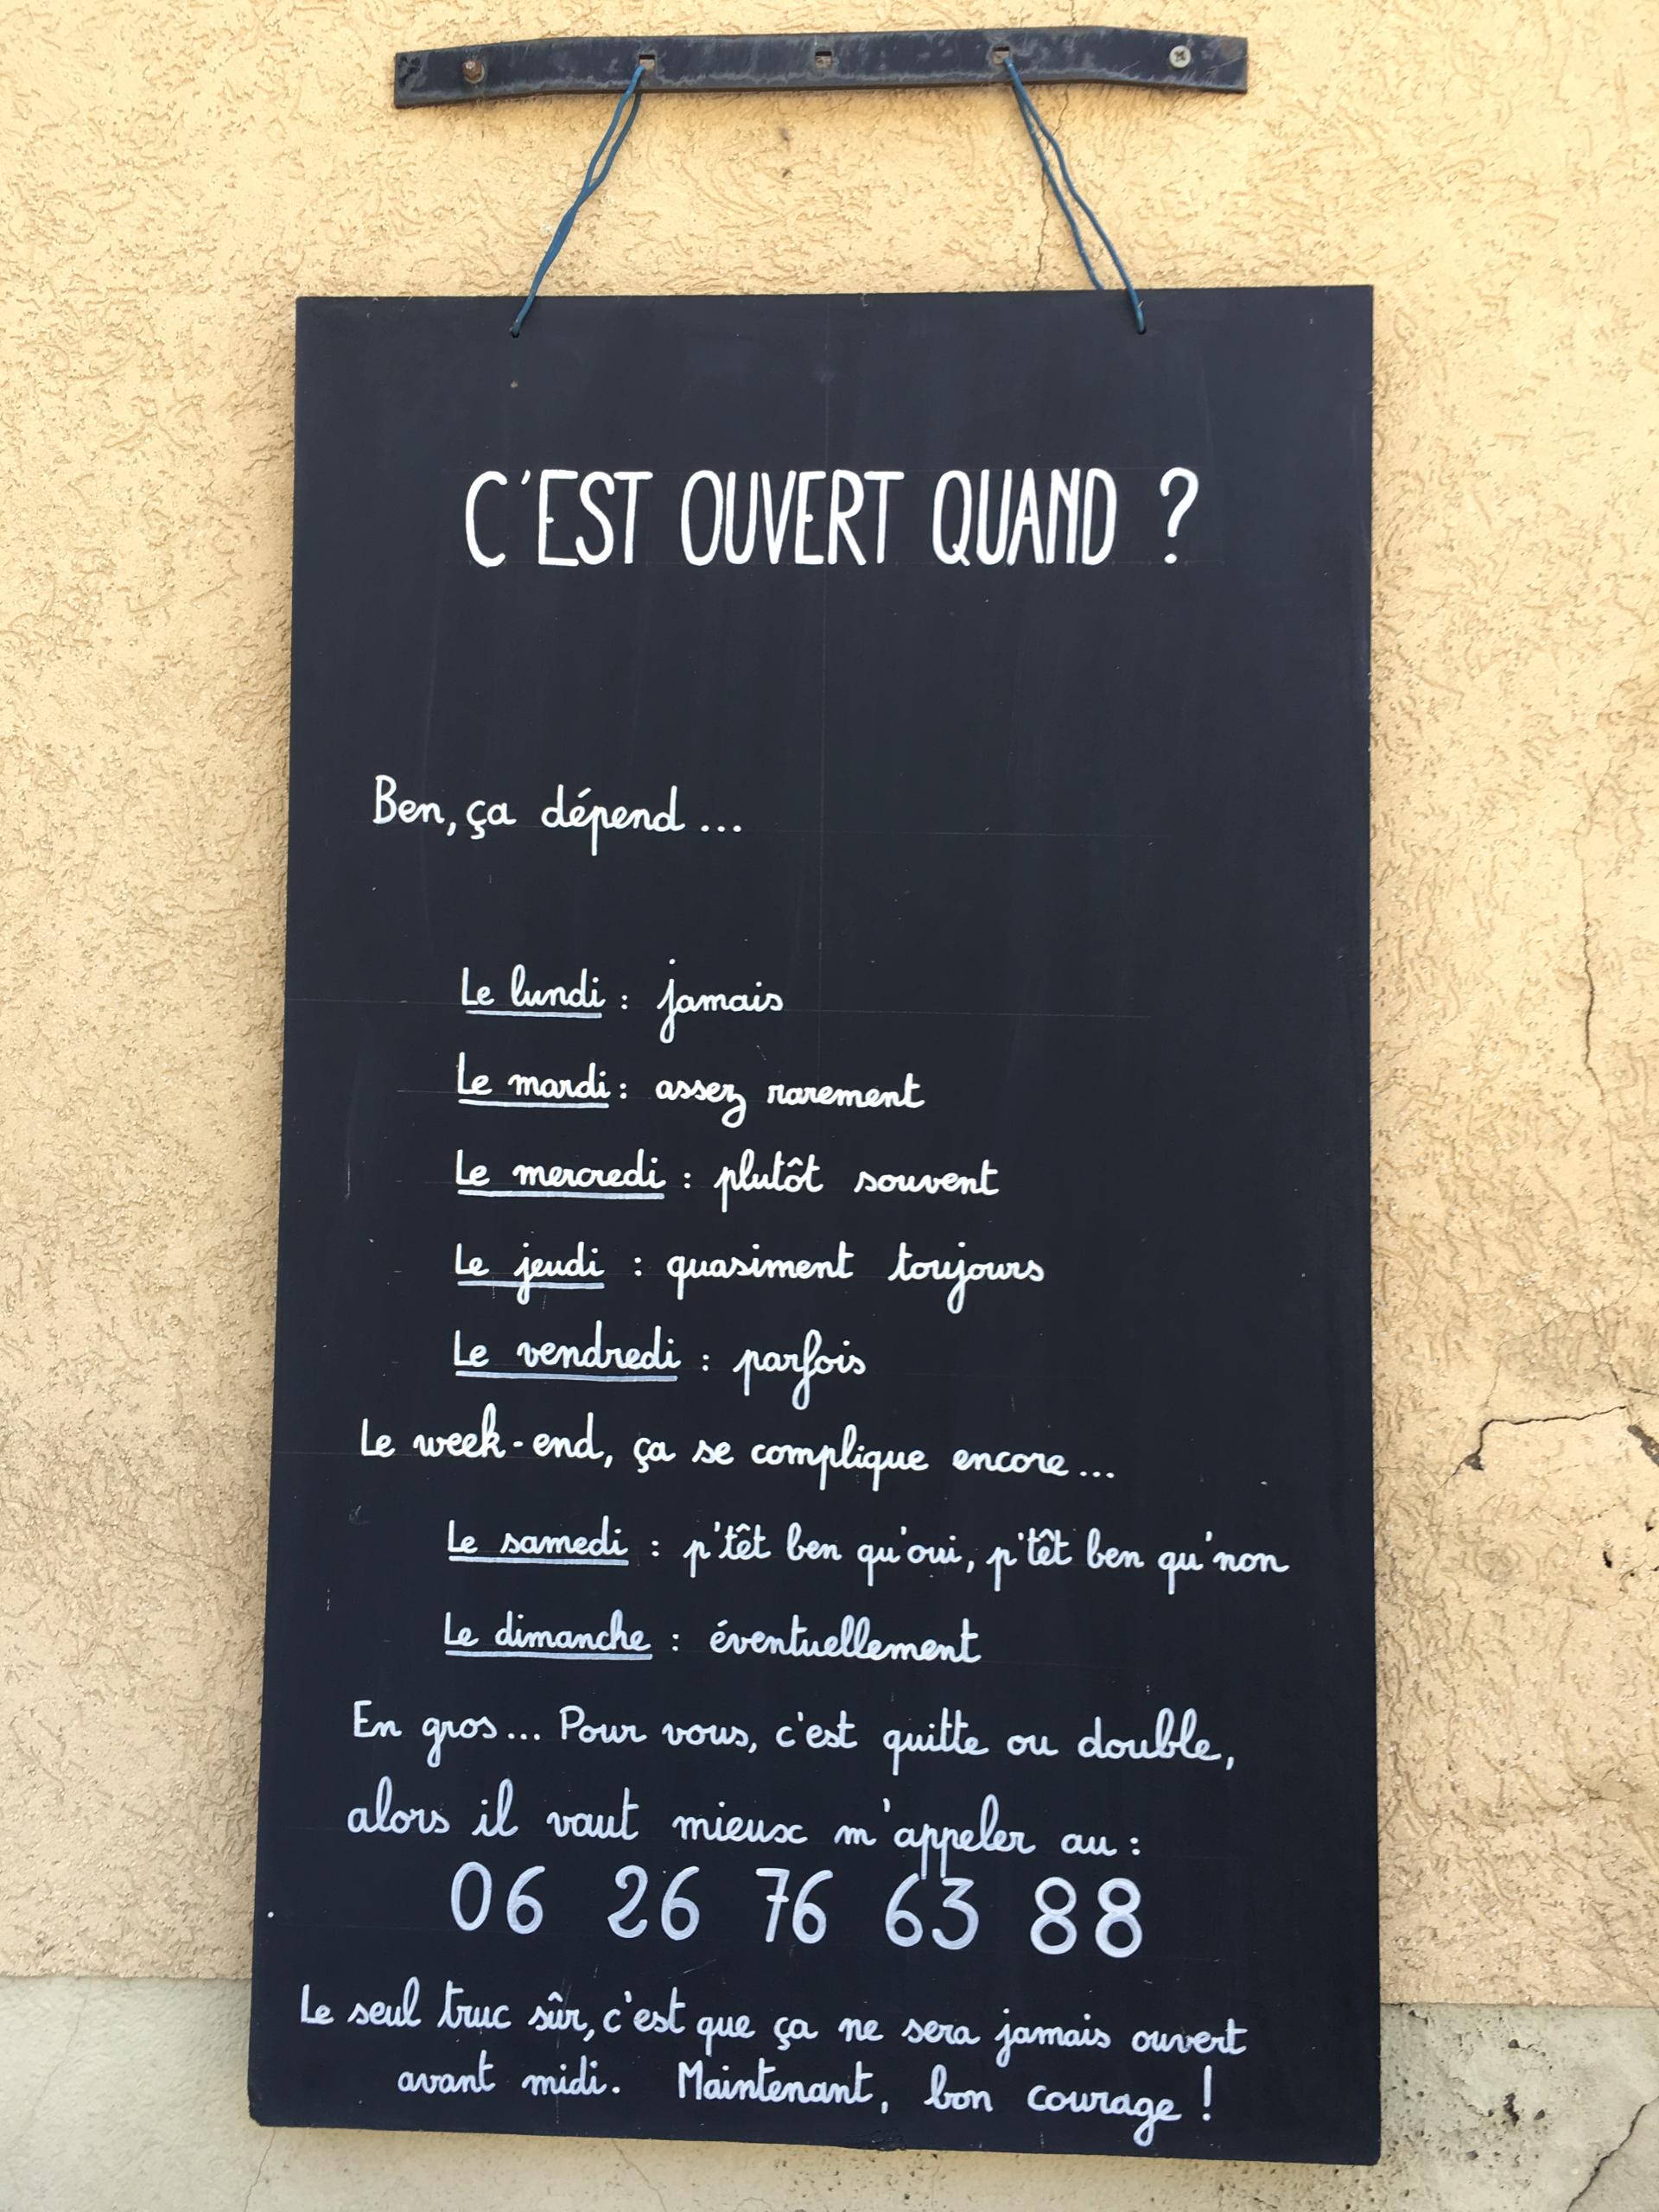 C'EST OUVERT QUAND ?
Ben, ça dépend...
Le lundi : jamais
Le mardi : assez rarement
Le mercredi : plutôt souvent
Le jeudi : quasiment toujours
Le vendredi : parfois
Le week-end, ça se complique encore...
Le samedi : p'têt ben qu'oui, p'têt ben qu'non
Le dimanche : éventuellement
En gros... Pour vous, c'est quitte ou double,
alors il vaut mieux m'appeler au :
06 26 76 63 88
Le seul truc sûr, c'est que ça ne sera jamais ouvert
avant midi. Maintenant, bon courage !